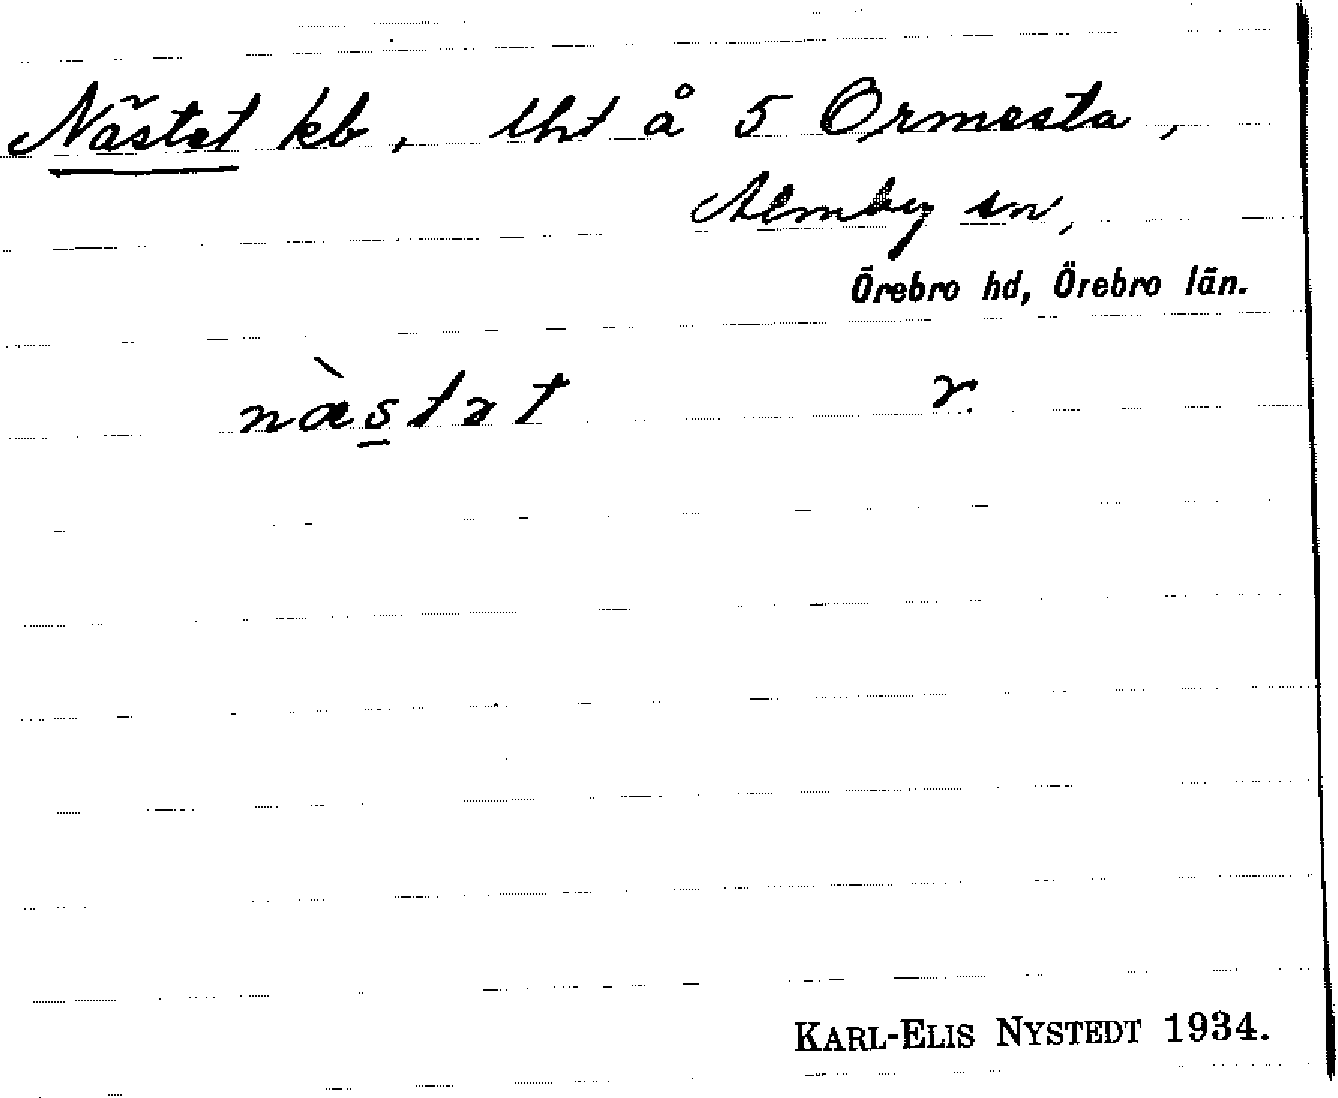 Nästet kb, lht å 5 Ormesta,
Almby sn,
Örebro hd, Örebro län.
næ̀stət r.
KARL-ELIS NYSTEDT 1934.